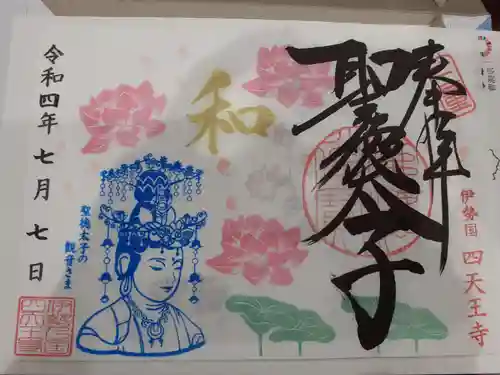 奉拝
聖徳太子
和
伊勢国 四天王寺
聖徳太子の
観音さま
令和四年七月七日